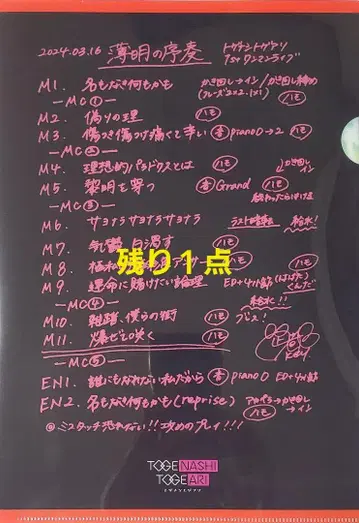 2024.03.16 薄明の序奏 トゲナシトゲアリ 1st ワンマンライブ
M1. 名もなき何もかも かき回し→イン/かき回し締め
(フレーズ2×2.1×1) ハモ
—MC①—
M2. 偽りの理 ハモ
M3. 傷つき傷つけ痛くて辛い 音 piano0→2 ハモ
—MC②—
M4. 理想的パラドクスとは ハモ かき回しイン
M5. 黎明を穿つ 音 Grand ハモ
—MC③—
M6. サヨナラサヨナラサヨナラ ラスト暗転 給水!
M7. 気鬱、白濁す ハモ
M8. 極私的 アンサー ハモ
残り1点
M9. 運命に賭けたい論理 ED+4小節 (はばたくんだ)
—MC④— 給水!!
M10. 雑踏、僕らの街 ハモ ブレス!
M11. 爆ぜて咲く ハモ
—MC⑤—
EN1. 誰にもなれない私だから 音 piano0 ED+4小節
EN2. 名もなき何もかも(reprise) かき回し→イン ハモ
◎ミスタッチ恐れない!!攻めのプレイ!!!
TOGENASHI
TOGEARI
トゲナシトゲアリ